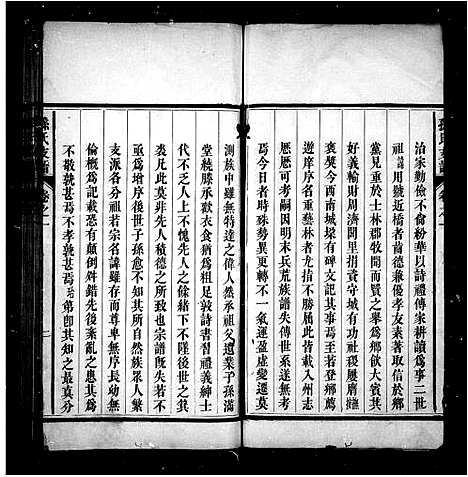 治家勤儉不尙紛華以詩禮傳家耕讀爲事二世
祖諱用號近橋者齒德兼優孝友素著取信於鄉
黨見重於士林郡牧聞而賢之舉爲鄉飲大賓其
好義輸財周濟閭里捐資守城有功社稷屢膺旌
奬今西南城垛有碑文記其事焉至若登鄉薦
遊庠序名重藝林者尤指不勝屈此皆載入州志
歷歷可考嗣因明末兵荒族譜失傳世系遂無考
焉今日者時殊勢異更轉不一氣運盈虛變遷莫
測族中雖無特達之偉人然承祖父遺業子孫滿
堂繞膝承歡衣食猶爲粗足敦詩書習禮義紳士
代不乏人上不愧先人之餘緒下不墜後世之箕
裘凡此莫非先人積德之所致也宗譜旣失若不
重爲增序後世子孫愈不知其所自然族眾人繁
支派各分祖若宗名諱雖存而尊卑無序長幼無
倫槪爲記載恐有顚倒舛錯先後紊亂之患其爲
不敬孰甚焉不孝孰甚焉宗弟卽其知之最眞分
孫氏支譜
卷之一